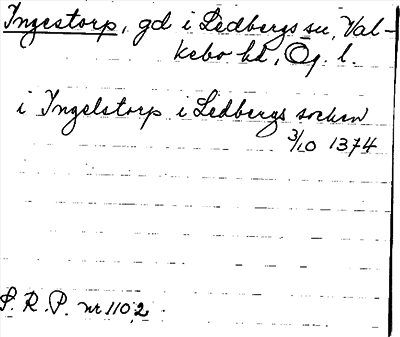 Ingestorp, gd i Ledbergs sn, Val-
kebo hd, Ög. l.
i Ingelstorp i Ledbergs socken
3/10 1374
S. R. P. nr 1102